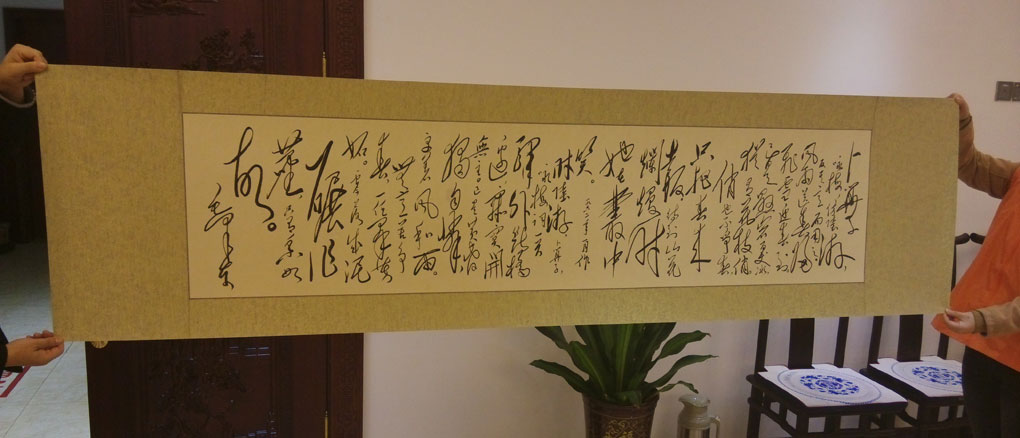 卜算子
咏梅
风雨送春归
飞雪迎春到
已是悬崖百丈冰
犹有花枝俏
俏也不争春
只把春来
报待到山花
烂熳时
她在丛中
笑。
陆游 卜算子
咏梅词
驿外断桥
边寂寞开
无主已是黄昏
独自愁
更著风和雨。
无意苦争
春一任群芳
妒。零落成泥
碾作
尘,只有香如
故。
毛泽东